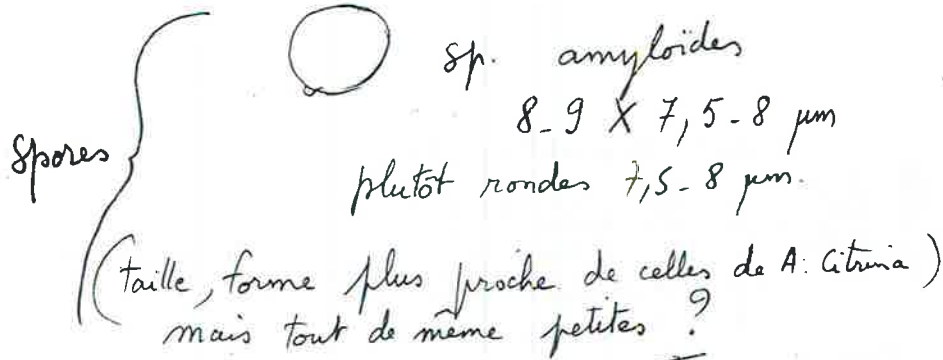 spores
sp. amyloïdes
8-9 X 7,5-8 µm
plutôt rondes 7,5-8 µm.
(taille, forme plus proche de celles de A. Citrina)
mais tout de même petites ?